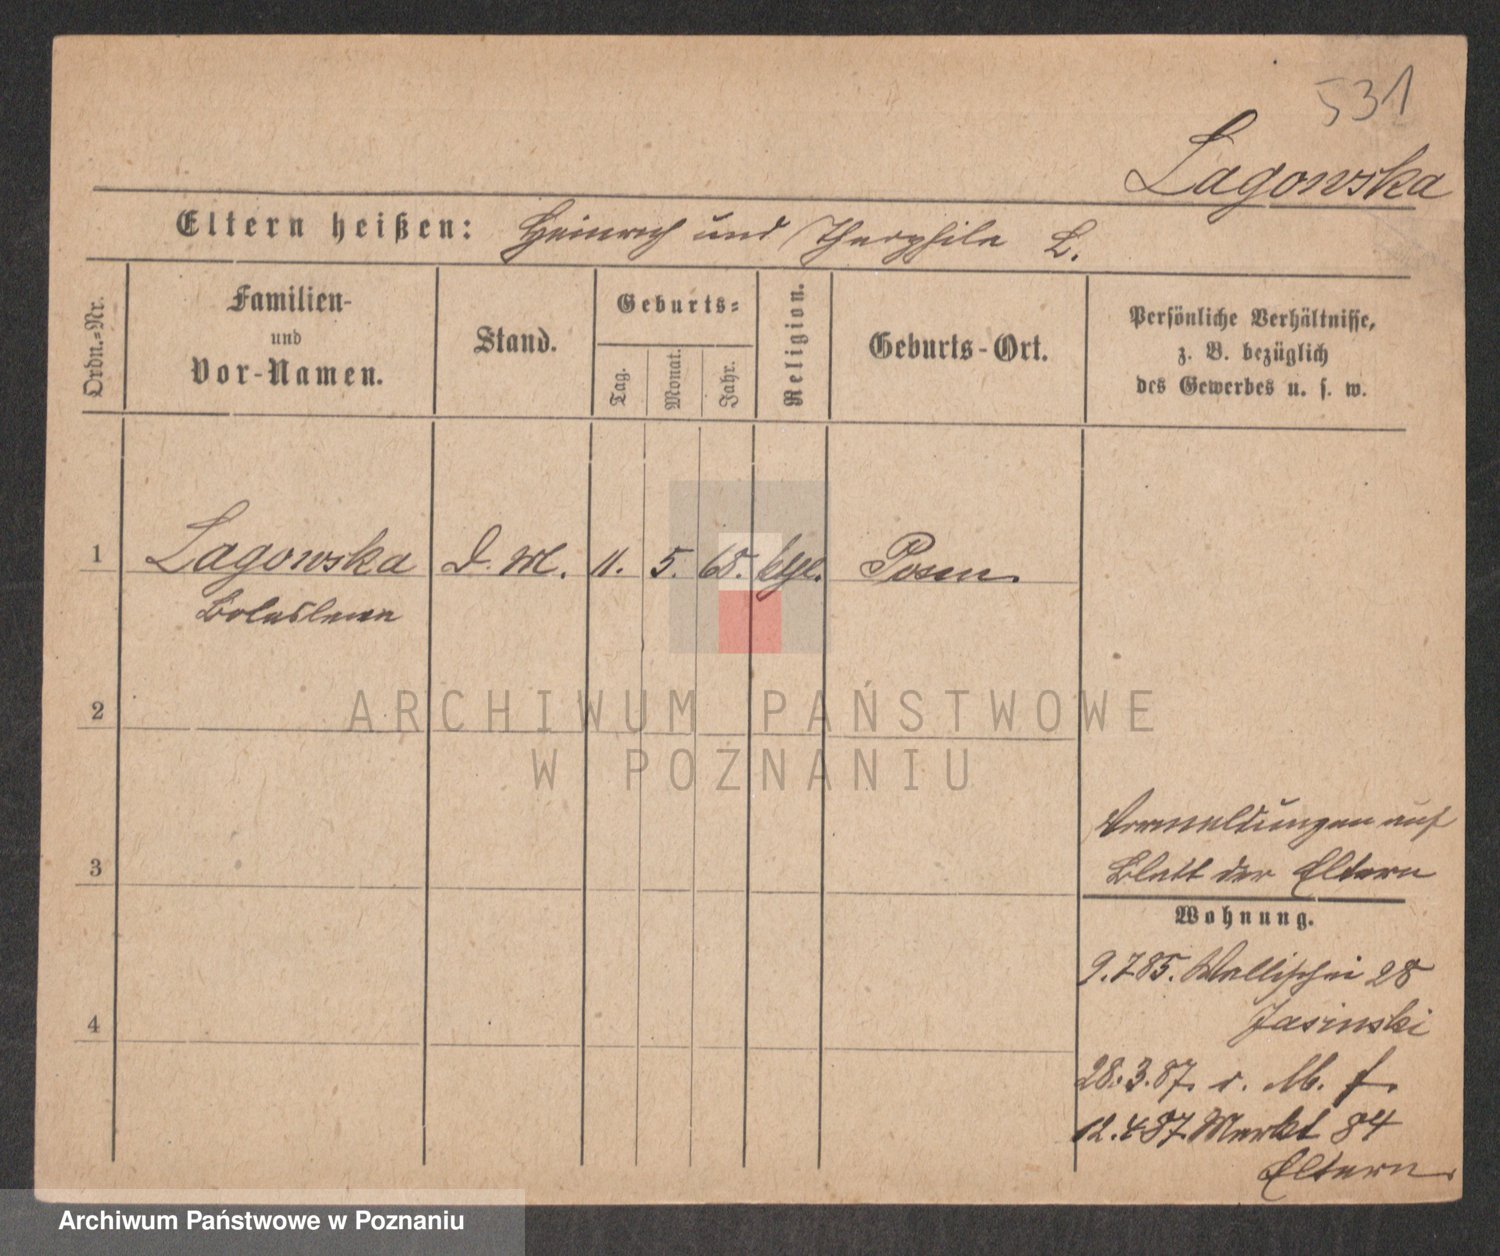 531
Lagowska
Eltern heißen: Heinrich und Theophile L.
Ordn.-Nr.
Familien-
und
Vor-Namen.
Stand.
Geburts-
Tag.
Monat.
Jahr.
Religion.
Geburts-Ort.
Persönliche Verhältnisse,
z. B. bezüglich
des Gewerbes u. s. w.
1 Lagowska D. M. 11. 5. 65. Posen.
2
3
4
ARCHIWUM PAŃSTWOWE
W POZNANIU
auf
Blatt der Eltern
Wohnung.
9.7.85. Wallischei 28
Jasinski
28.3.87.
12.4.87. Markt 84
Eltern.
Archiwum Państwowe w Poznaniu